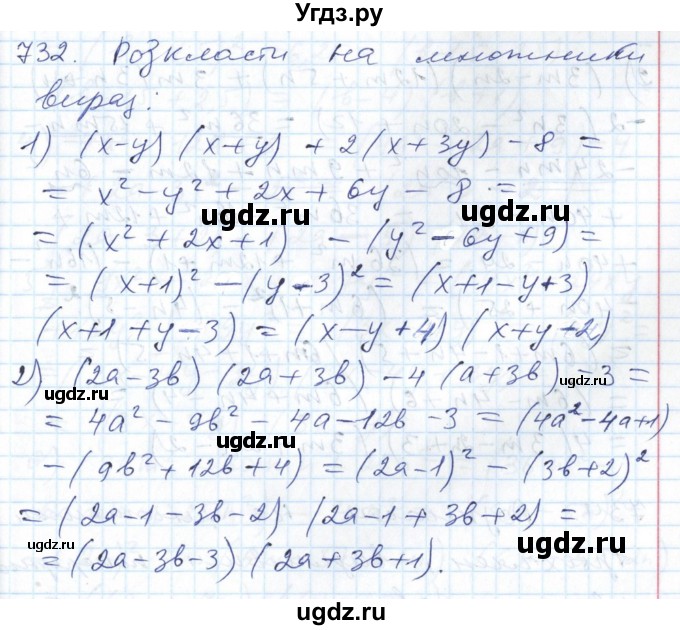 Угдз.ру
732. Розкласти на множники
вираз:
1) (x-y) (x+y) + 2(x+3y) - 8 =
= x² - y² + 2x + 6y - 8 =
ugdz.ru ugdz.ru
= (x² + 2x + 1) - (y² - 6y + 9) =
= (x+1)² - (y-3)² = (x+1-y+3)
(x+1+y-3) = (x-y+4) (x+y-2)
ugdz.ru
2) (2a-3b) (2a+3b) - 4(a+3b) - 3 =
ugdz.ru ugdz.ru
= 4a² - 9b² - 4a - 12b - 3 = (4a² - 4a + 1)
- (9b² + 12b + 4) = (2a-1)² - (3b+2)²
ugdz.ru
= (2a-1-3b-2) (2a-1+3b+2) =
ugdz.ru ugdz.ru
= (2a-3b-3) (2a+3b+1).
ugdz.ru